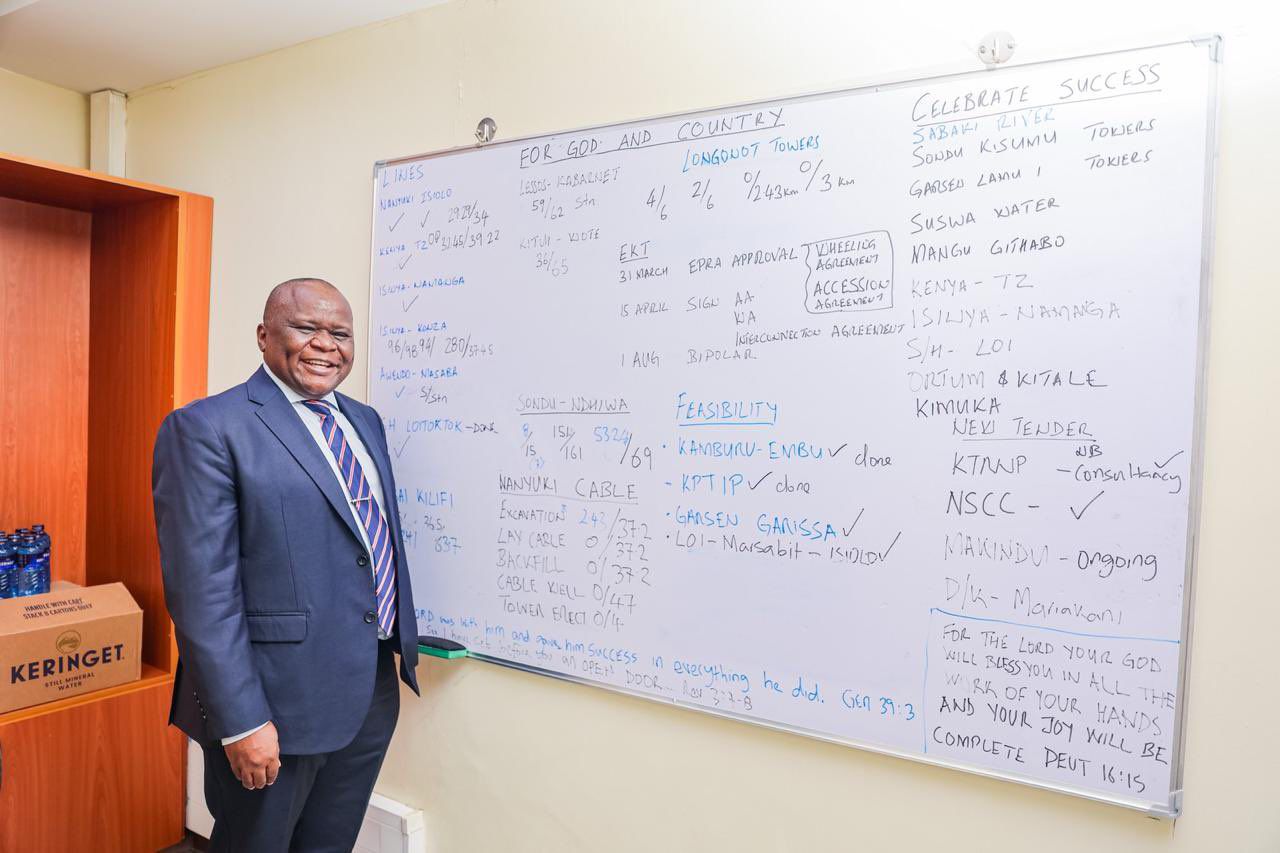 FOR GOD AND COUNTRY
LINES
NANYUKI ISIOLO
KENYA TZ
ISINYA - NAMANGA
ISINYA - KONZA
96/98 94/ 280/3745
AWENDO - NIASABA
S/Stn
LOITOKTOK - Done
KILIFI
LESSOS - KABARNET
59/62 Stn
KITUI - WOTE
36/65
LONGONOT TOWERS
4/6 2/6 0/243km 0/3 km
EKT
31 MARCH EPRA APPROVAL
WHEELING
AGREEMENT
ACCESSION
AGREEMENT
15 APRIL SIGN AA
WA
INTERCONNECTION AGREEMENT
1 AUG BIPOLAR
SONDU - NDHIWA
8/15 154/161 /69
NANYUKI CABLE
EXCAVATION 242/372
LAY CABLE 0/372
BACKFILL 0/372
CABLE 0/47
TOWER ERECT 0/4
FEASIBILITY
• KAMBURU - EMBU ✓ done
- KPTIP ✓ done
• GARSEN GARISSA ✓
• LOI - Marsabit - ISIOLO ✓
CELEBRATE SUCCESS
SABAKI RIVER
SONDU KISUMU TOWERS
GARSEN LAMU 1 TOWERS
SUSWA WATER
MANGU GITHABO
KENYA - TZ
ISINYA - NAMANGA
S/H - LOI
ORTUM & KITALE
KIMUKA
NEW TENDER
KTNNP - NB Consultancy ✓
NSCC - ✓
MAKINDU - Ongoing
D/K - Mariakani
FOR THE LORD YOUR GOD
WILL BLESS YOU IN ALL THE
WORK OF YOUR HANDS
AND YOUR JOY WILL BE
COMPLETE DEUT 16:15
ORD was with him and gave him SUCCESS in everything he did. GEN 39:3
See I have set before you an OPEN DOOR - Rev 3:7-8
HANDLE WITH CARE
STACK 8 CARTONS ONLY
KERINGET.
STILL MINERAL
WATER